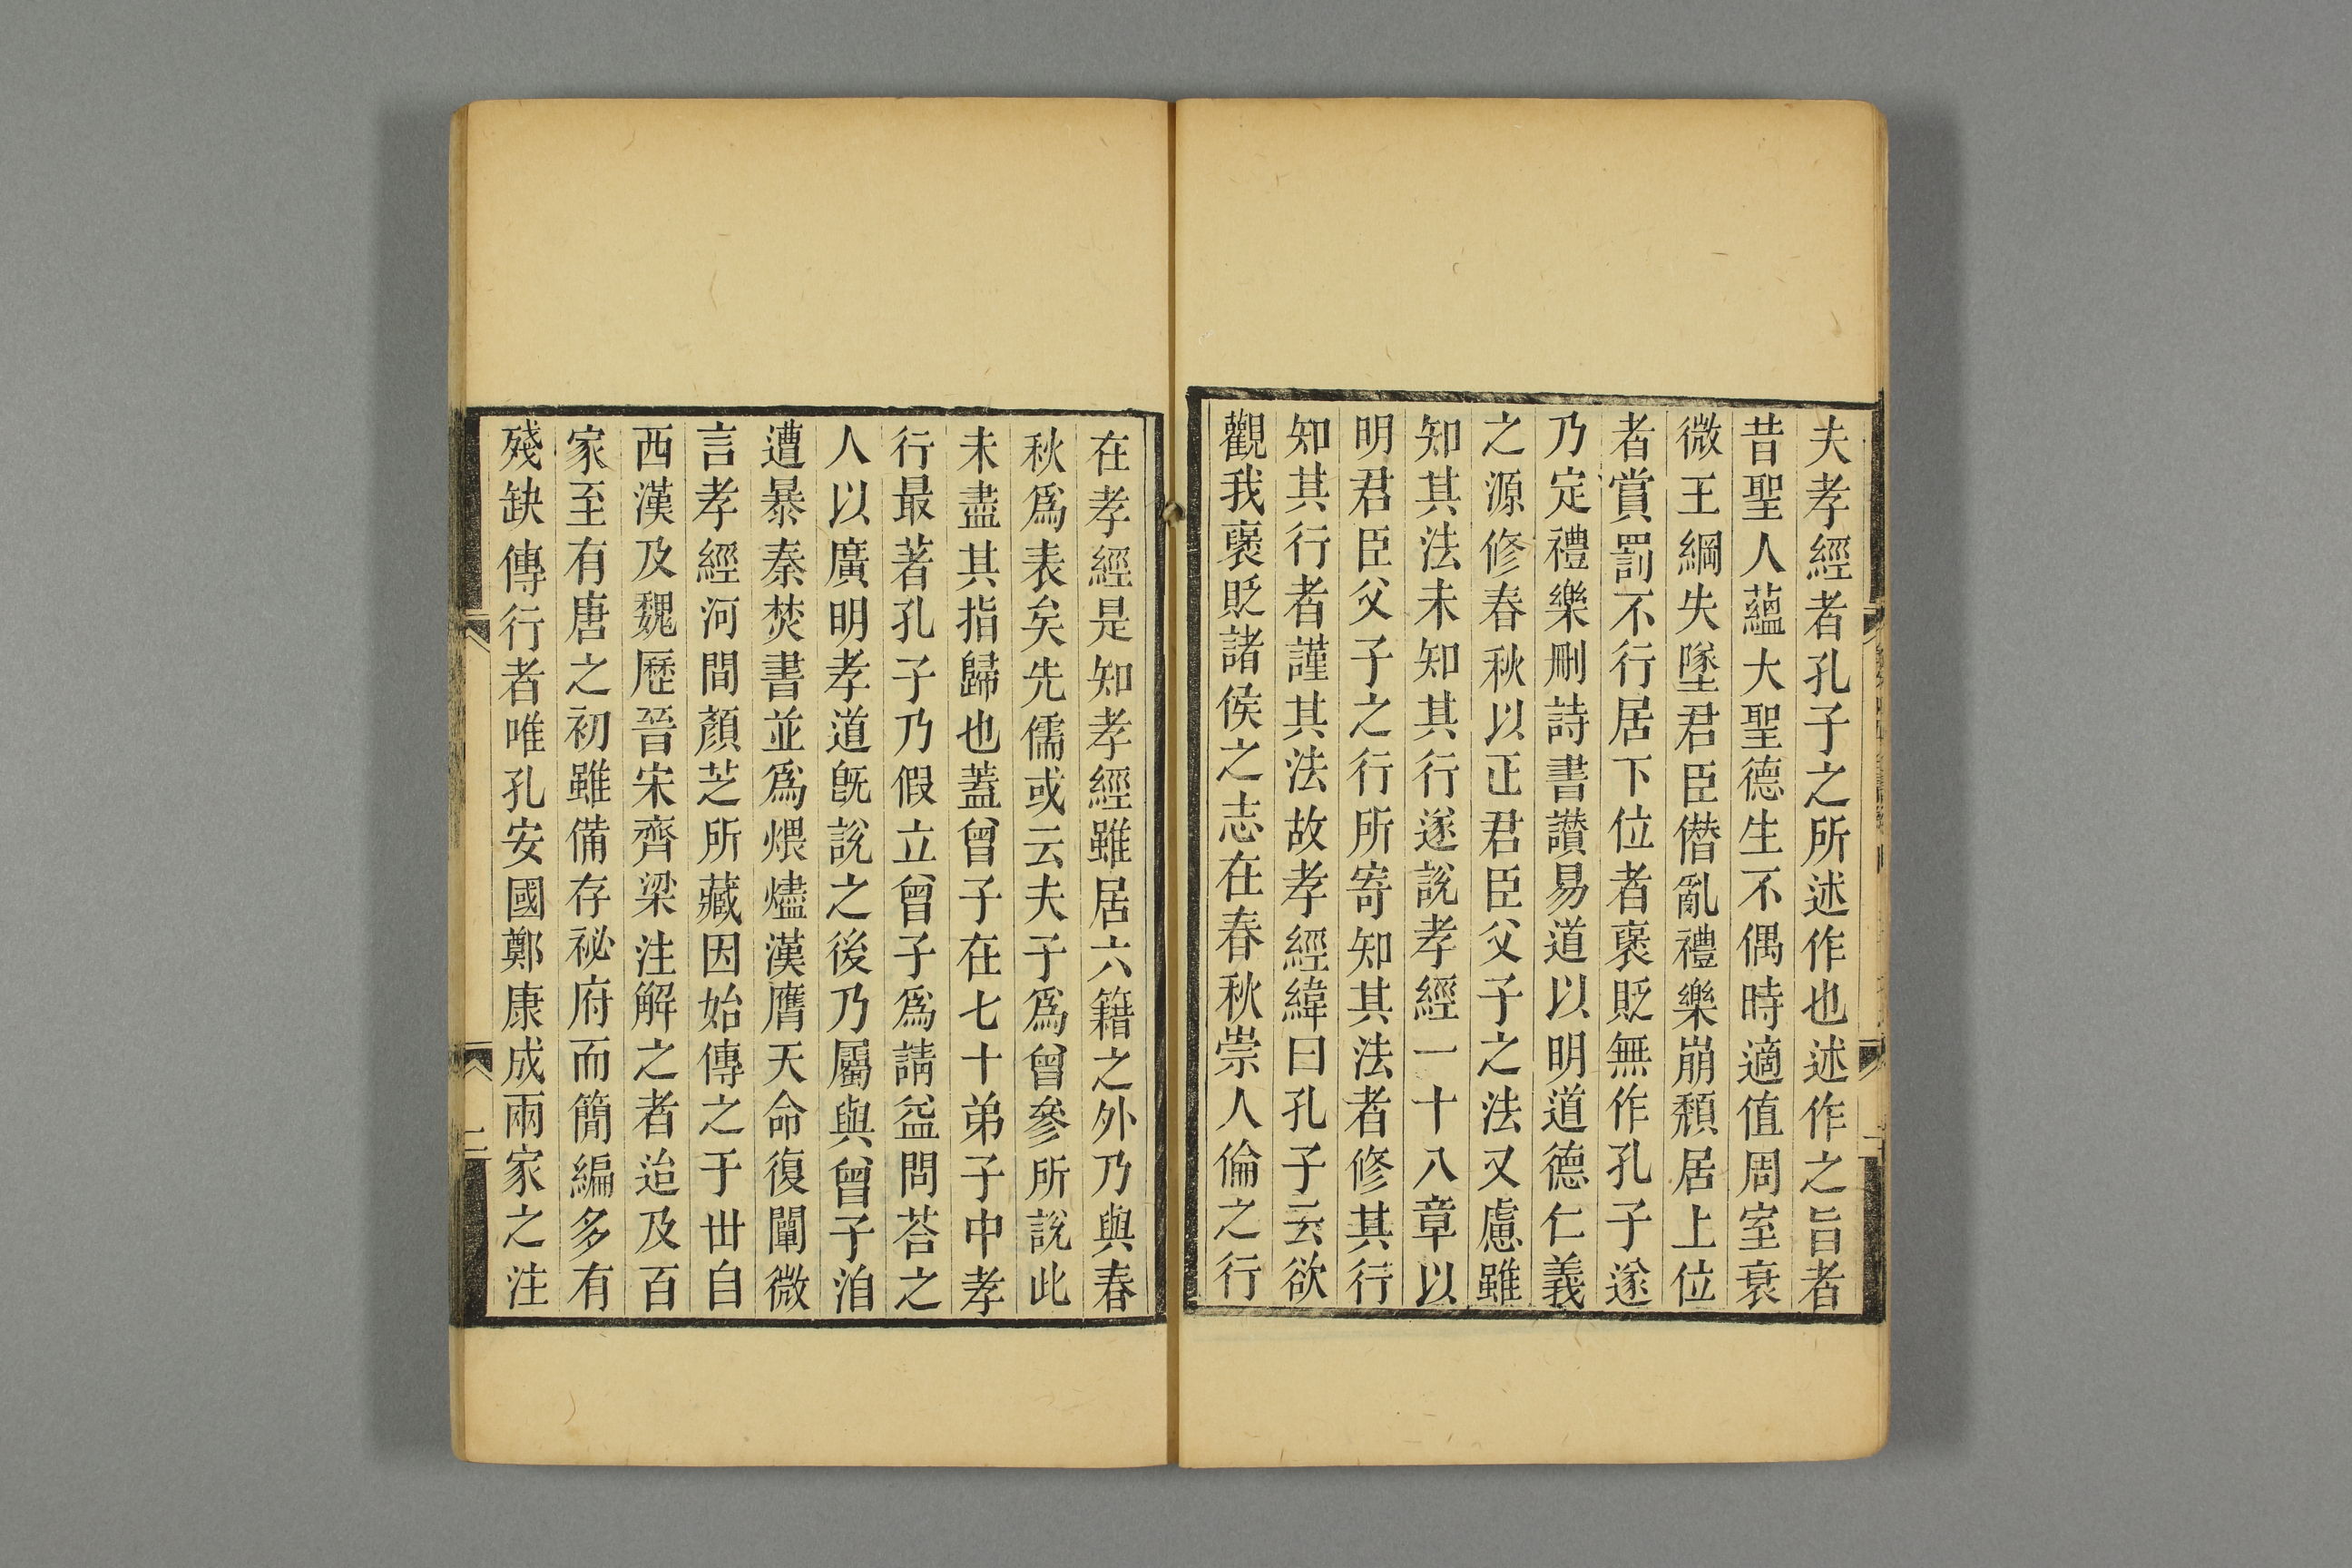 夫孝經者孔子之所述作也述作之旨者
昔聖人蘊大聖德生不偶時適值周室衰
微王綱失墜君臣僭亂禮樂崩頹居上位
者賞罰不行居下位者襃貶無作孔子遂
乃定禮樂刪詩書讚易道以明道德仁義
之源修春秋以正君臣父子之法又慮雖
知其法未知其行遂說孝經一十八章以
明君臣父子之行所寄知其法者修其行
知其行者謹其法故孝經緯曰孔子云欲
觀我襃貶諸侯之志在春秋崇人倫之行
在孝經是知孝經雖居六籍之外乃與春
秋爲表矣先儒或云夫子爲曾參所說此
未盡其指歸也蓋曾子在七十弟子中孝
行最著孔子乃假立曾子爲請益問荅之
人以廣明孝道旣說之後乃屬與曾子洎
遭暴秦焚書並爲煨燼漢膺天命復闡微
言孝經河間顏芝所藏因始傳之于世自
西漢及魏歷晉宋齊梁注解之者迨及百
家至有唐之初雖備存祕府而簡編多有
殘缺傳行者唯孔安國鄭康成兩家之注
二